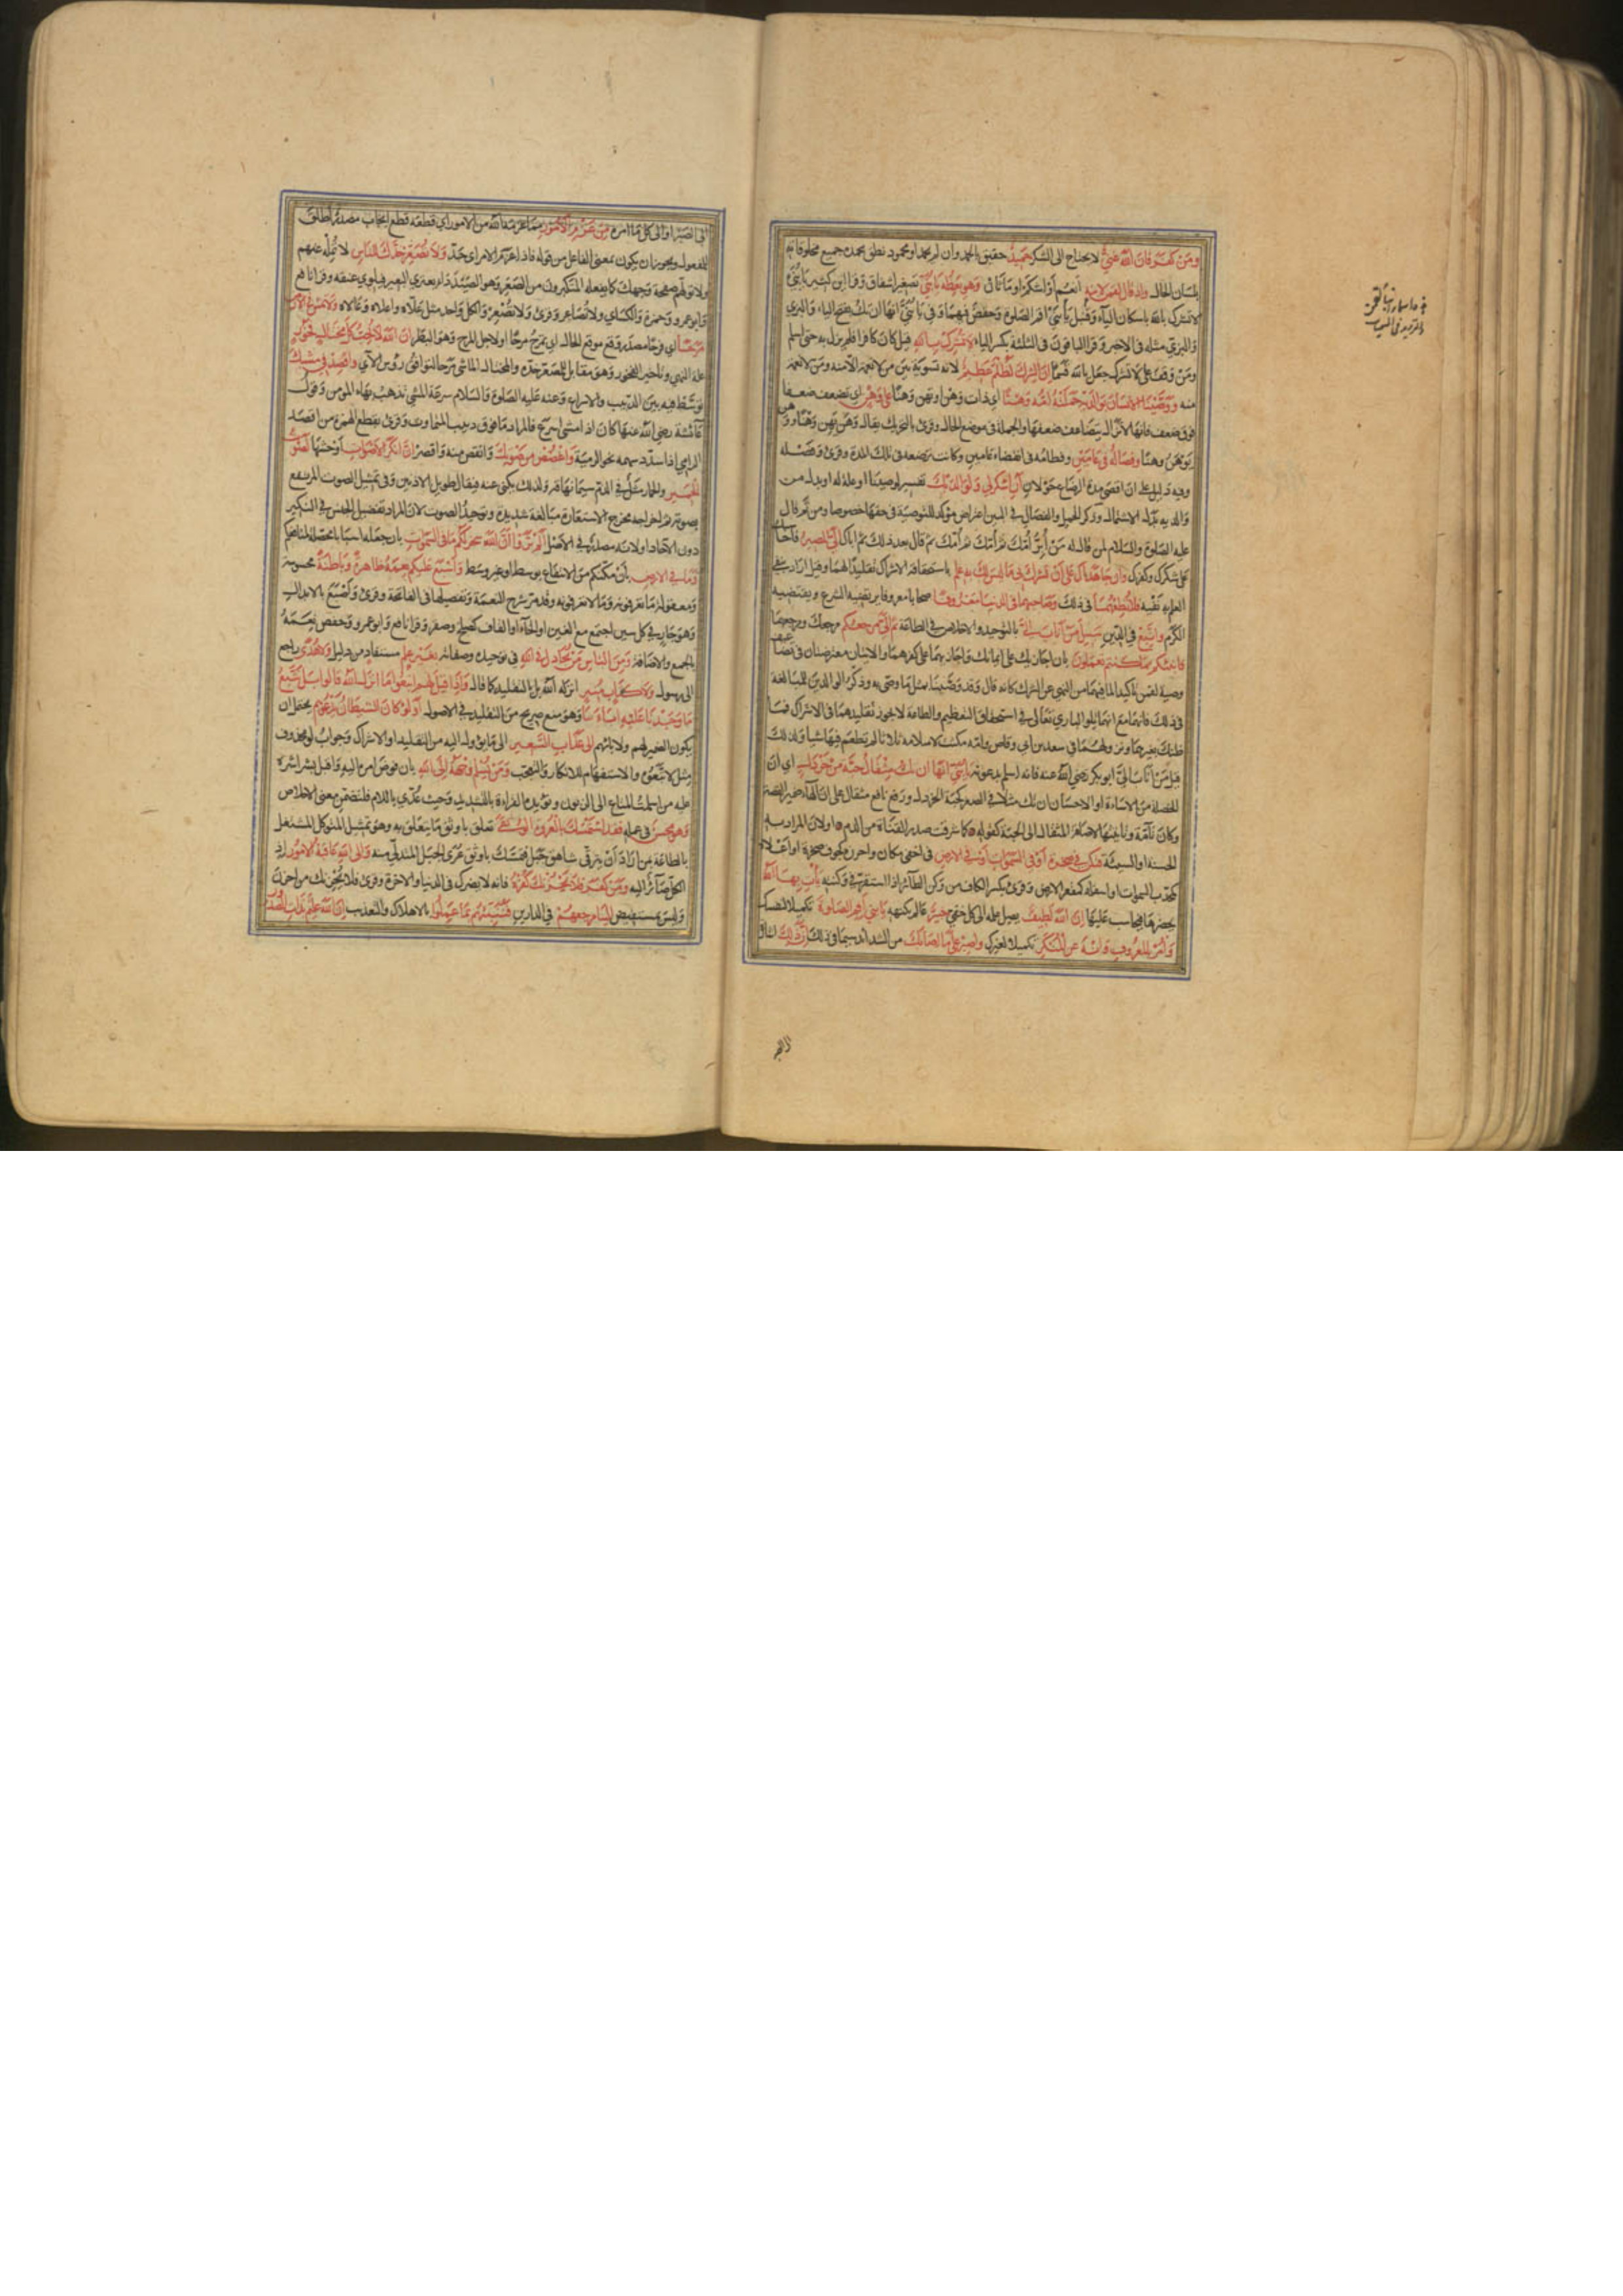 ومن كفر فان الله غني لا يحتاج الى الشكر حميد حقيق بالحمد وان لم يحمد او محمود نطق بحمده جميع مخلوقاته
بلسان الحال واذ قال لقمن لابنه انعم او اشكم او ماثان وهو يعظه يابني تصغير اشفاق وقرا ابن كثير يابني
لا تشرك بالله باسكان اليآء وقنبل يابني اقم الصلوة وحفص فيهما وفي يابني انها ان تك بفتح الياء والبزي
والبزي مثله في الاخير وقرا الباقون في الثلثة بكسر الياء لا تشرك بالله قيل كان كافرا فلم يزل به حتى اسلم
ومن وقف على لا تشرك جعل بالله قسما ان الشرك لظلم عظيم لانه تسوية بين من لا نعمة الا منه ومن لا نعمة
منه ووصينا الانسان بوالديه حملته امه وهنا اي ذات وهن او تهن وهنا على وهن اي تضعف ضعفا
فوق ضعف فانها لا تزال يتضاعف ضعفها والجملة في موضع الحال وقرئ بالتحريك يقال وهن يهن وهنا و وهن
يوهن وهنا وفصاله في عامين وفطامه في انقضاء عامين وكانت ترضعه في تلك المدة وقرئ وفصله
وفيه دليل على ان اقصى مدة الرضاع حولان ان اشكر لي ولوالديك تفسير لوصينا او علة له او بدل من
والديه بدل الاشتمال وذكر الحمل والفصال في البين اعتراض مؤكد للتوصية في حقها خصوصا ومن ثم قال
عليه الصلوة والسلام لمن قال له من ابر امك ثم امك ثم امك ثم قال بعد ذلك ثم اباك الي المصير فاحاسبك
على شكرك وكفرك وان جاهداك على ان تشرك بي ما ليس لك به علم باستحقاقه الاشراك تقليدا لهما وقيل اراد بنفي
العلم به نفيه فلا تطعهما في ذلك وصاحبهما في الدنيا معروفا صحابا معروفا يرتضيه الشرع ويقتضيه
الكرم واتبع في الدين سبيل من اناب الي بالتوحيد والاخلاص في الطاعة ثم الي مرجعكم مرجعك ومرجعهما
فانبئكم بما كنتم تعملون بان اجازيك على ايمانك واجازيهما على كفرهما والايتان معترضتان في تضاعيف
وصية لقمن تاكيدا لما فيهما من النهي عن الشرك كانه قال وقد وصينا بمثل ما وصى به وذكر الوالدين للمبالغة
في ذلك فانهما مع انهما تلو الباري تعالى في استحقاق التعظيم والطاعة لا يجوز تقليدهما في الاشراك فما
ظنك بغيرهما ونزولهما في سعد بن ابي وقاص وامه مكثت لاسلامه ثلاثا لم تطعم فيها شيا ولذلك
قيل من اناب الي ابو بكر رضي الله عنه فانه اسلم بدعوته يابني انها ان تك مثقال حبة من خردل اي ان
الخصلة من الاساءة او الاحسان ان تك مثلا في الصغر كحبة الخردل ورفع نافع مثقال على ان الهاء ضمير القصة
وكان تامة وتانيثها لاضافة المثقال الى الحبة كقوله كما شرقت صدر القناة من الدم او لان المراد به
الحسنة او السيئة فتكن في صخرة او في السموات او في الارض في اخفى مكان واحرزه كجوف صخرة او اعلاه
كمحدب السموات او اسفله كمقعر الارض وقرئ بكسر الكاف من وكن الطائر اذا استقر في وكنته يات بها الله
يحضرها فيحاسب عليها ان الله لطيف يصل علمه الى كل خفي خبير عالم بكنهه يابني اقم الصلوة تكميلا لنفسك
وامر بالمعروف وانه عن المنكر تكميلا لغيرك واصبر على ما اصابك من الشدائد سيما في ذلك ان ذلك اشارة
الى الصبر او الى كل ما امره من عزم الامور مما عزمه الله من الامور اي قطعه قطع ايجاب مصدر اطلق
للمفعول ويجوز ان يكون بمعنى الفاعل من قوله فاذا عزم الامر اي جد ولا تصعر خدك للناس لا تمله عنهم
ولا تولهم صفحة وجهك كما يفعله المتكبرون من الصعر وهو الصيد داء يعتري البعير فيلوي عنقه وقرا نافع
وابو عمرو وحمزة والكسائي ولا تصاعر وقرئ ولا تصعر والكل واحد مثل علاه واعلاه وعالاه ولا تمش في الارض
مرحا اي فرحا مصدر وقع موقع الحال اي تمرح مرحا او لاجل المرح وهو البطر ان الله لا يحب كل مختال فخور
علة للنهي وتاخير الفخور وهو مقابل للمصعر خده والمختال للماشي مرحا لتوافق رؤس الآي واقصد في مشيك
توسط فيه بين الدبيب والاسراع وعنه عليه الصلوة والسلام سرعة المشي تذهب بهاء المؤمن وقول
عائشة رضي الله عنها كان اذا مشى اسرع فالمراد ما فوق دبيب المتماوت وقرئ بقطع الهمزة من اقصد
الرامي اذا سدد سهمه نحو الرمية واغضض من صوتك وانقص منه واقصر ان انكر الاصوات اوحشها لصوت
الحمير والحمار مثل في الذم سيما نهاقه ولذلك يكنى عنه فيقال طويل الاذنين وفي تمثيل الصوت المرتفع
بصوته ثم اخراجه مخرج الاستعارة مبالغة شديدة وتوحيد الصوت لان المراد تفضيل الجنس في النكير
دون الآحاد او لانه مصدر في الاصل الم تروا ان الله سخر لكم ما في السموات بان جعله اسبابا محصلة لمنافعكم
وما في الارض بان مكنكم من الانتفاع به بوسط او غير وسط واسبغ عليكم نعمه ظاهرة وباطنة محسوسة
ومعقولة ما تعرفونه وما لا تعرفونه وقد مر شرح النعمة وتفصيلها في الفاتحة وقرئ واصبغ بالابدال
وهو جار في كل سين اجتمع مع الغين او الخآء او القاف كصلخ وصقر وقرا نافع وابو عمرو وحفص نعمه
بالجمع والاضافة ومن الناس من يجادل في الله في توحيده وصفاته بغير علم مستفاد من دليل ولا هدى راجع
الى رسول ولا كتاب منير انزله الله بل بالتقليد كما قال واذا قيل لهم اتبعوا ما انزل الله قالوا بل نتبع
ما وجدنا عليه اباءنا وهو منع صريح من التقليد في الاصول اولو كان الشيطان يدعوهم يحتمل ان
يكون الضمير لهم ولابائهم الى عذاب السعير الى ما يؤل اليه من التقليد او الاشراك وجواب لو محذوف
مثل لاتبعوه والاستفهام للانكار والتعجب ومن يسلم وجهه الى الله بان فوض امره اليه واقبل بشراشره
عليه من اسلمت المتاع الى الزبون ويؤيده القراءة بالتشديد وحيث عدي باللام فلتضمن معنى الاخلاص
وهو محسن في عمله فقد استمسك بالعروة الوثقى تعلق باوثق ما يتعلق به وهو تمثيل للمتوكل المشتغل
بالطاعة بمن اراد ان يترقى شاهق جبل فتمسك باوثق عرى الحبل المتدلي منه والى الله عاقبة الامور اذ
الكل صائر اليه ومن كفر فلا يحزنك كفره فانه لا يضرك في الدنيا والاخرة وقرئ فلا يحزنك من احزن
وليس بمستفيض الينا مرجعهم في الدارين فننبئهم بما عملوا بالاهلاك والتعذيب ان الله عليم بذات الصدور